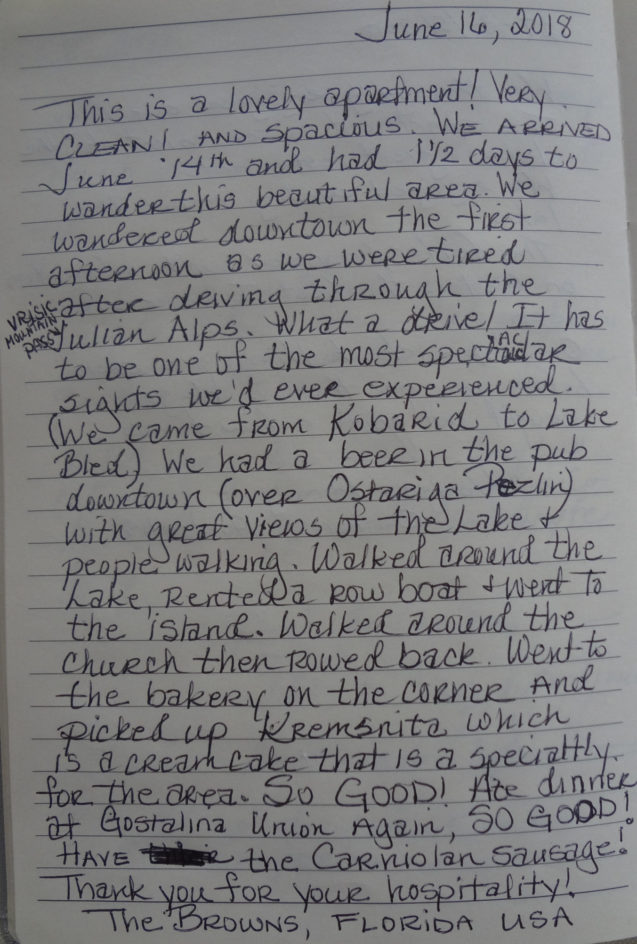 June 16, 2018
This is a lovely apartment! Very
CLEAN! AND spacious. WE ARRIVED
June '14th and had 1 1/2 days to
wander this beautiful area. We
wandered downtown the first
afternoon as we were tired
after driving through the
VRISIC MOUNTAIN PASS
Julian Alps. What a drive! It has
to be one of the most spectacular
sights we'd ever experienced.
(We came from Kobarid to Lake
Bled) We had a beer in the pub
downtown (over Ostariga Pezlin)
with great views of the Lake &
people walking. Walked around the
Lake, Rented a row boat & went to
the island. Walked around the
church then rowed back. Went to
the bakery on the corner And
picked up Kremsnita which
is a cream cake that is a specialtly
for the area. SO GOOD! Ate dinner
at Gostalina Union Again, SO GOOD!
HAVE the Carniolan Sausage!
Thank you for your hospitality!
The BROWNS, FLORIDA USA